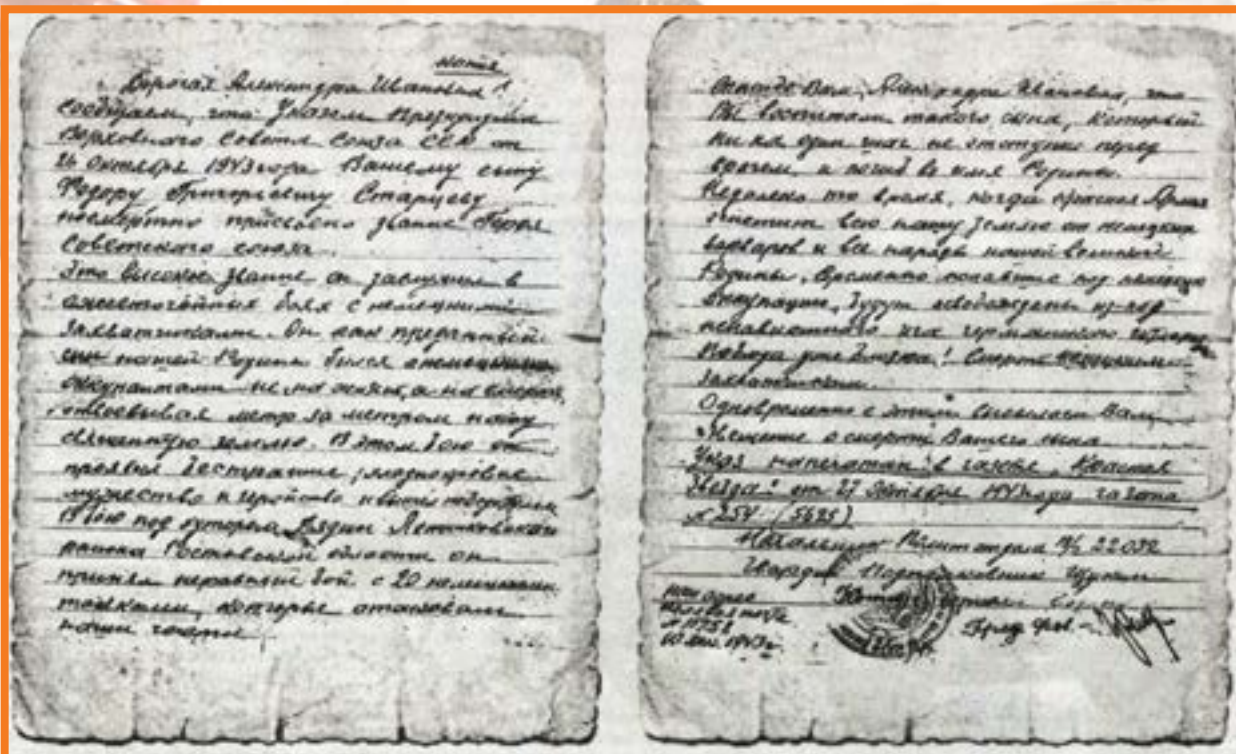 копия
Дорогая Александра Ивановна!
сообщаем, что Указом Президиума
Верховного Совета Союза ССР от
26 октября 1943 года Вашему сыну
Федору Григорьевичу Старцеву
посмертно присвоено звание Героя
Советского Союза.
Это высокое звание он заслужил в
ожесточённых боях с немецкими
захватчиками. Он как преданный
сын нашей Родины бился с немецкими
оккупантами не на жизнь, а на смерть,
отвоевывая метр за метром нашу
священную землю. В этом бою он
проявил бесстрашие, хладнокровие
мужество и геройство
В бою под хутором
района Ростовской области он
принял неравный бой с 20 немецкими
танками, которые атаковали
наши
Вам, Александра Ивановна, что
Вы воспитали такого сына, который
ни на один шаг не отступил перед
врагом и погиб во имя Родины.
Недалеко то время, когда Красная Армия
очистит всю нашу землю от немецких
варваров и все народы нашей великой
Родины, временно попавшие под немецкую
оккупацию, будут освобождены из-под
ненавистного ига германского
Победа уже близка! Смерть немецким
захватчикам.
Одновременно с этим Вам
извещение о смерти Вашего сына
Указ напечатан в газете "Красная
Звезда" от 27 октября 1943 года газета
№ 254 (5625)
Начальник Политотдела в/ч 22032
Гвардии Подполковник
наш адрес
полевая почта
1943 г.